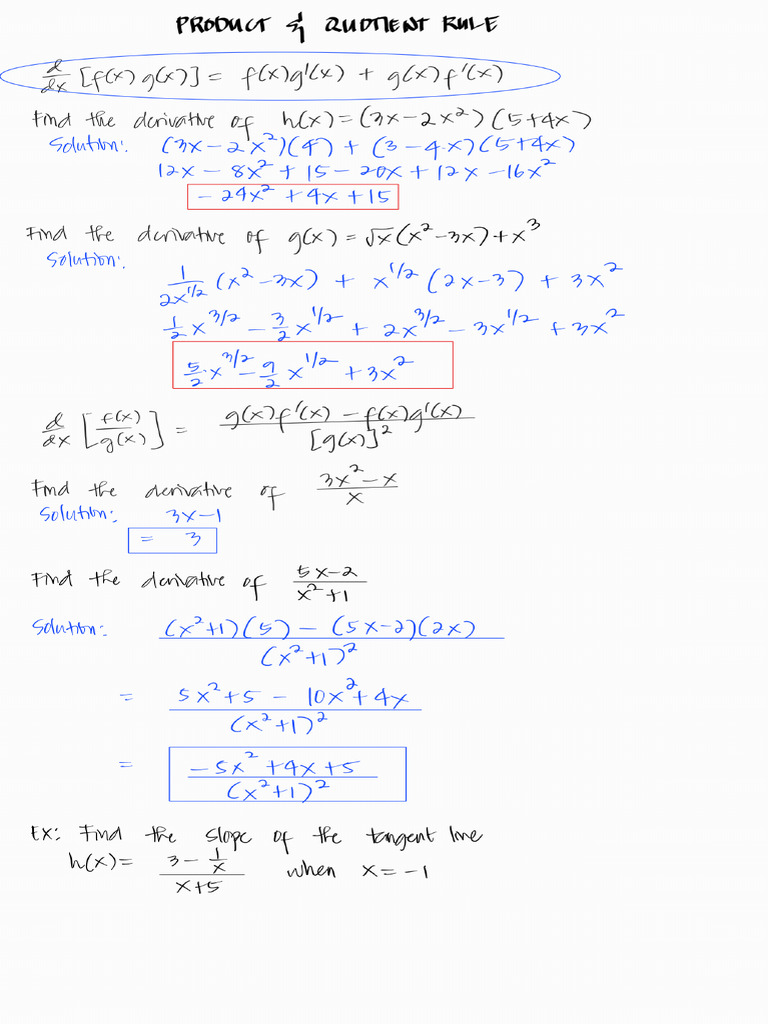 PRODUCT & QUOTIENT RULE
d/dx [f(x) g(x)] = f(x)g'(x) + g(x)f'(x)
Find the derivative of h(x) = (3x-2x²)(5+4x)
Solution: (3x-2x²)(4) + (3-4x)(5+4x)
12x - 8x² + 15 - 20x + 12x - 16x²
- 24x² + 4x + 15
Find the derivative of g(x) = √x(x²-3x)+x³
Solution:
1/2x^1/2 (x²-3x) + x^1/2 (2x-3) + 3x²
1/2 x^3/2 - 3/2 x^1/2 + 2x^3/2 - 3x^1/2 + 3x²
5/2 x^3/2 - 9/2 x^1/2 + 3x²
d/dx [f(x)/g(x)] = g(x)f'(x) - f(x)g'(x) / [g(x)]²
Find the derivative of 3x²-x / x
Solution: 3x-1
= 3
Find the derivative of 5x-2 / x²+1
Solution: (x²+1)(5) - (5x-2)(2x) / (x²+1)²
= 5x²+5 - 10x²+4x / (x²+1)²
= -5x²+4x+5 / (x²+1)²
Ex: Find the slope of the tangent line
h(x) = 3 - 1/x / x+5 when x = -1